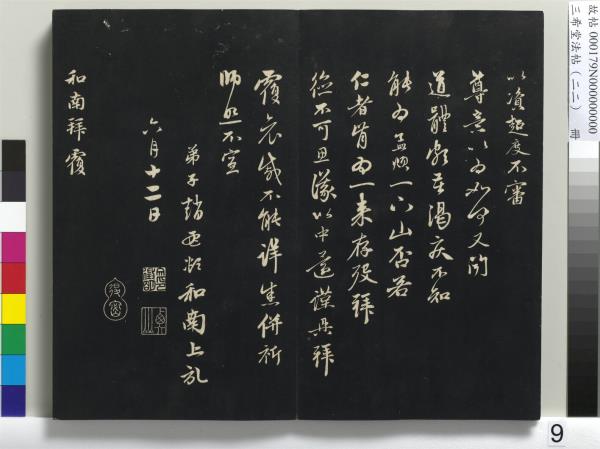 以資超度不審
尊意以為如何又聞
道體頗苦渴疾不知
能為孟頫一下山否若
仁者肯為一來存歿拜
德不可思議以中還謹具拜
覆哀感不能詳悉併祈
師照不宣
弟子趙孟頫和南上
六月十二日
和南拜覆
故帖 000179N000000000
三希堂法帖(二二) 冊
9